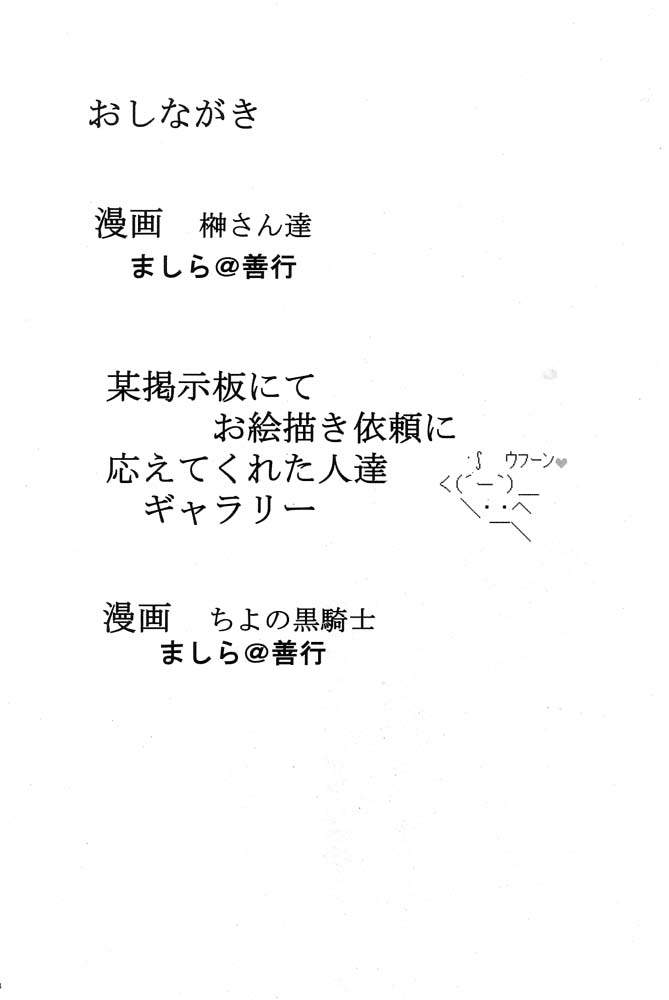 おしながき
漫画　榊さん達
ましら＠善行
某掲示板にて
お絵描き依頼に
応えてくれた人達
ギャラリー
ウフーン♥
漫画　ちよの黒騎士
ましら＠善行